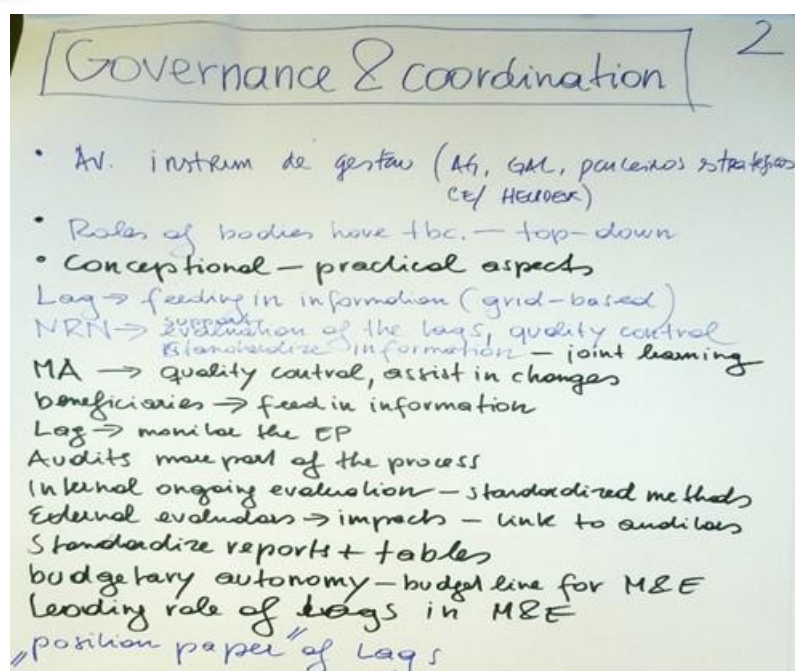 Governance & coordination 2
• Av. instrum de gestão (AG, GAL, parceiros estrategicos
CE/ HELPDESK)
• Roles of bodies have tbc. — top-down
• Conceptional — practical aspects
Lag → feeding in information (grid-based)
support
NRN → evaluation of the lags, quality control
Standardize information — joint learning
MA → quality control, assist in changes
beneficiaries → feed in information
Lag → monitor the EP
Audits more part of the process
Internal ongoing evaluation — standardized methods
External evaluators → impacts — link to auditors
Standardize reports + tables
budgetary autonomy — budget line for M&E
Leading role of Lags in M&E
„position paper" of Lags